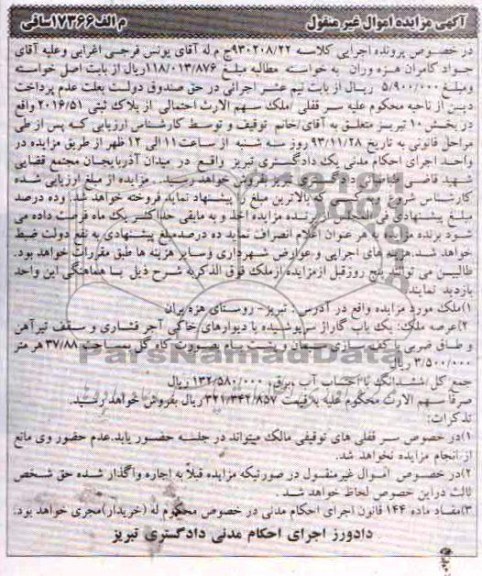 آگهی مزایده اموال غیر منقول م الف ۱۷۳۶۶سافی
در خصوص پرونده اجرایی کلاسه ۹۳۰۲۰۸/۲۲ج م له آقای یونس فرجی اغرابی وعلیه آقای
جواد کامران هزه وران به خواسته مطالبه مبلغ ۱۱۸/۰۱۳/۸۷۶ریال از بابت اصل خواسته
ومبلغ ۵/۹۰۰/۰۰۰ ریال از بابت نیم عشر اجرائی در حق صندوق دولت بعلت عدم پرداخت
دین از ناحیه محکوم علیه سر قفلی املک سهم الارث احتمالی از پلاک ثبتی ۲۰۱۶/۵۱ واقع
در بخش ۱۰ تبریز متعلق به آقای/خانم توقیف و توسط کارشناس ارزیابی که پس از طی
مراحل قانونی به تاریخ ۹۳/۱۱/۲۸ روز سه شنبه از ساعت ۱۱ الی ۱۲ ظهر از طریق مزایده در
واحد اجرای احکام مدنی یک دادگستری تبریز واقع در میدان آذربایجان مجتمع قضایی
شهید قاضی طباطبایی دادگستری تبریز بفروش خواهد رسید. مزایده از مبلغ ارزیابی شده
کارشناس شروع و به کسی که بالاترین مبلغ را پیشنهاد نماید فروخته خواهد شد. وده درصد
مبلغ پیشنهادی فی المجلس از برنده مزایده اخذ و به مابقی حداکثر یک ماه فرصت داده می
شود برنده مزایده به هر عنوان اعلام انصراف نماید ده درصدمبلغ پیشنهادی به نفع دولت ضبط
خواهد شد.هزینه های اجرایی و عوارض شهرداری وسایر هزینه ها طبق مقررات خواهد بود.
طالبین می توانند پنج روزقبل ازمزایده ازملک فوق الذکربه شرح ذیل با هماهنگی این واحد
بازدید نمایند
۱)ملک مورد مزایده واقع در آدرس: تبریز- روستای هزه بران
۲)عرصه ملک: یک باب گاراژ سرپوشیده با دیوارهای خاکی آجر فشاری و سقف تیرآهن
و طاق ضربی با کف سازی سیمان و پشت بام بصورت کاه گل بمساحت ۳۷/۸۸ هر متر
۳/۵۰۰/۰۰۰ ریال
جمع کل ششدانگ با احتساب آب وبرق: ۱۳۲/۵۸۰/۰۰۰ ریال
صرفا سهم الارث محکوم علیه به قیمت ۳۲۱/۳۴۲/۸۵۷ریال بفروش خواهد رسید.
تذکرات:
۱)در خصوص سر قفلی های توقیفی مالک میتواند در جلسه حضور یابد.عدم حضور وی مانع
از انجام مزایده نخواهد شد.
۲)در خصوص اموال غیرمنقول در صورتیکه مزایده قبلاً به اجاره واگذار شده حق شخص
ثالث دراین خصوص لحاظ خواهد شد.
۳)مفاد ماده ۱۴۴ قانون اجرای احکام مدنی در خصوص محکوم له (خریدار)مجری خواهد بود.
دادورز اجرای احکام مدنی دادگستری تبریز
ParsNamadData